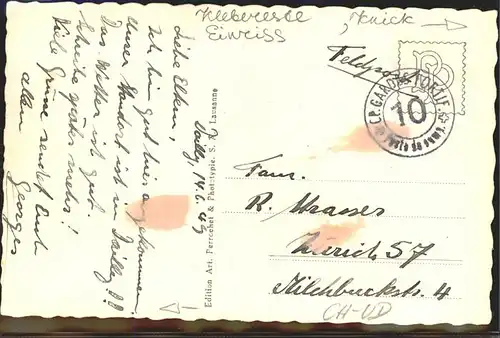 Klebereste
Eiweiss
Knick
Feldpost
10
Poste de camp.
Dailly, 14.6.43
Liebe Eltern,
Ich bin gut hier angekommen.
Unser Standort ist in Dailly
Das Wetter ist gut.
Schreibe später mehr!
Viele Grüsse sendet Euch
allen
Georges
Edition Art. Perrochet & Phototypie, S. A. Lausanne
Fam.
R. Strasser
Zürich 57
Milchbuckstr. 4
CH-VD